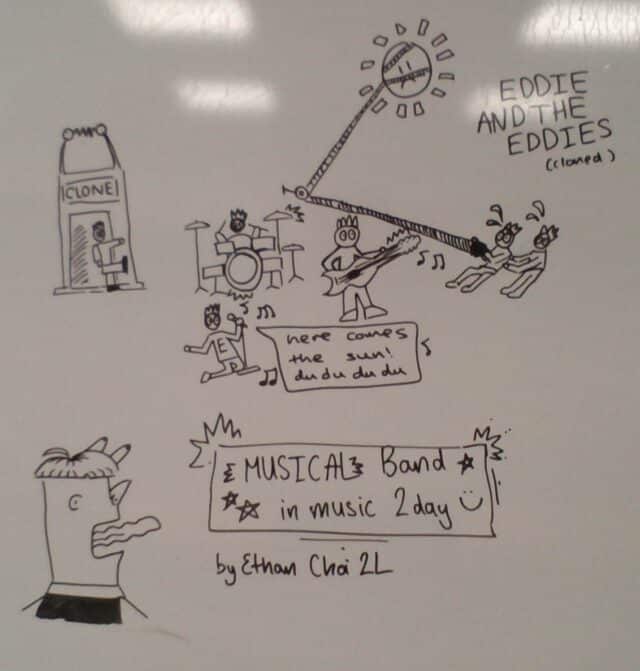 EDDIE
AND THE
EDDIES
(cloned)
CLONE
E
here comes
the sun!
du du du du
MUSICAL Band
in music 2day
by Ethan Choi 2L